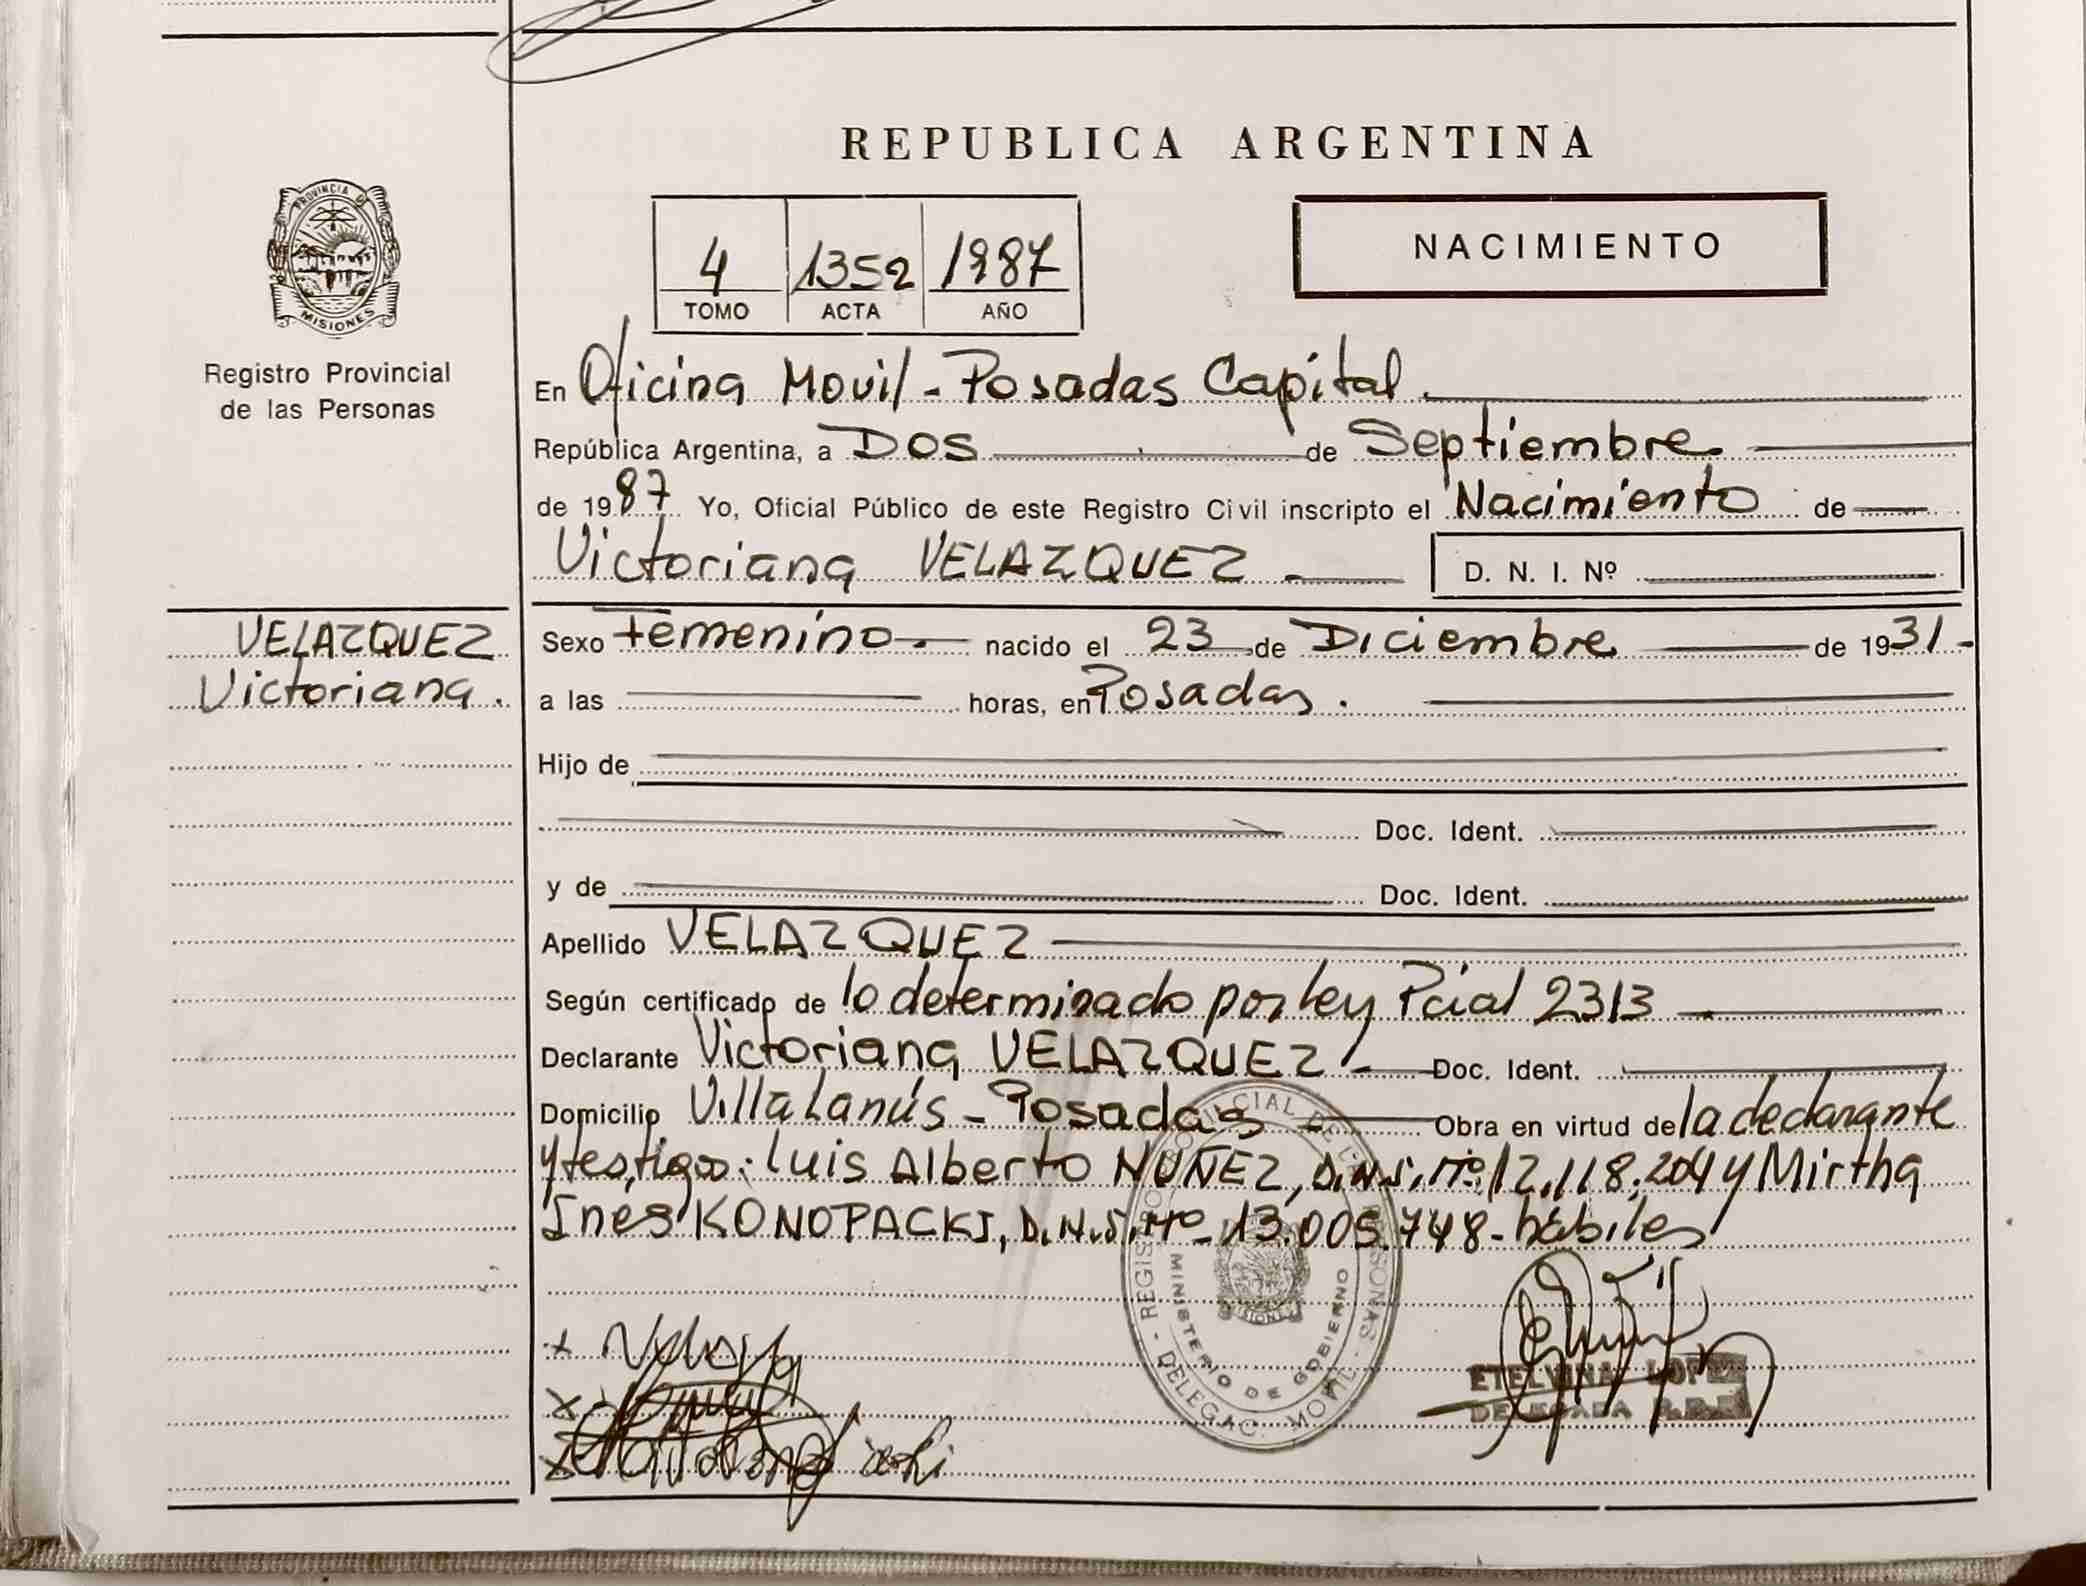 REPUBLICA ARGENTINA
PROVINCIA DE
MISIONES
Registro Provincial
de las Personas
4 1352 1987
TOMO ACTA AÑO
NACIMIENTO
En Oficina Movil - Posadas Capital.
República Argentina, a DOS de Septiembre
de 1987 Yo, Oficial Público de este Registro Civil inscripto el Nacimiento de
Victoriana VELAZQUEZ - D. N. I. Nº
VELAZQUEZ
Victoriana.
Sexo Femenino. nacido el 23 de Diciembre de 1931-
a las horas, en Posadas.
Hijo de
Doc. Ident.
y de Doc. Ident.
Apellido VELAZQUEZ
Según certificado de lo determinado por ley Pcial 2313
Declarante Victoriana VELAZQUEZ - Doc. Ident.
Domicilio Villa Lanús - Posadas - Obra en virtud de la declarante
y testigos: Luis Alberto NUÑEZ, D.N.I. Nº 12.118.204 y Mirtha
Ines KONOPACKI, D.N.I. Nº 13.005.748 - hábiles
REGISTRO PROVINCIAL DE LAS PERSONAS - DELEGAC. MOVIL
MINISTERIO DE GOBIERNO
MISIONES
ETELVINA LOPEZ
DELEGADA R.P.P.